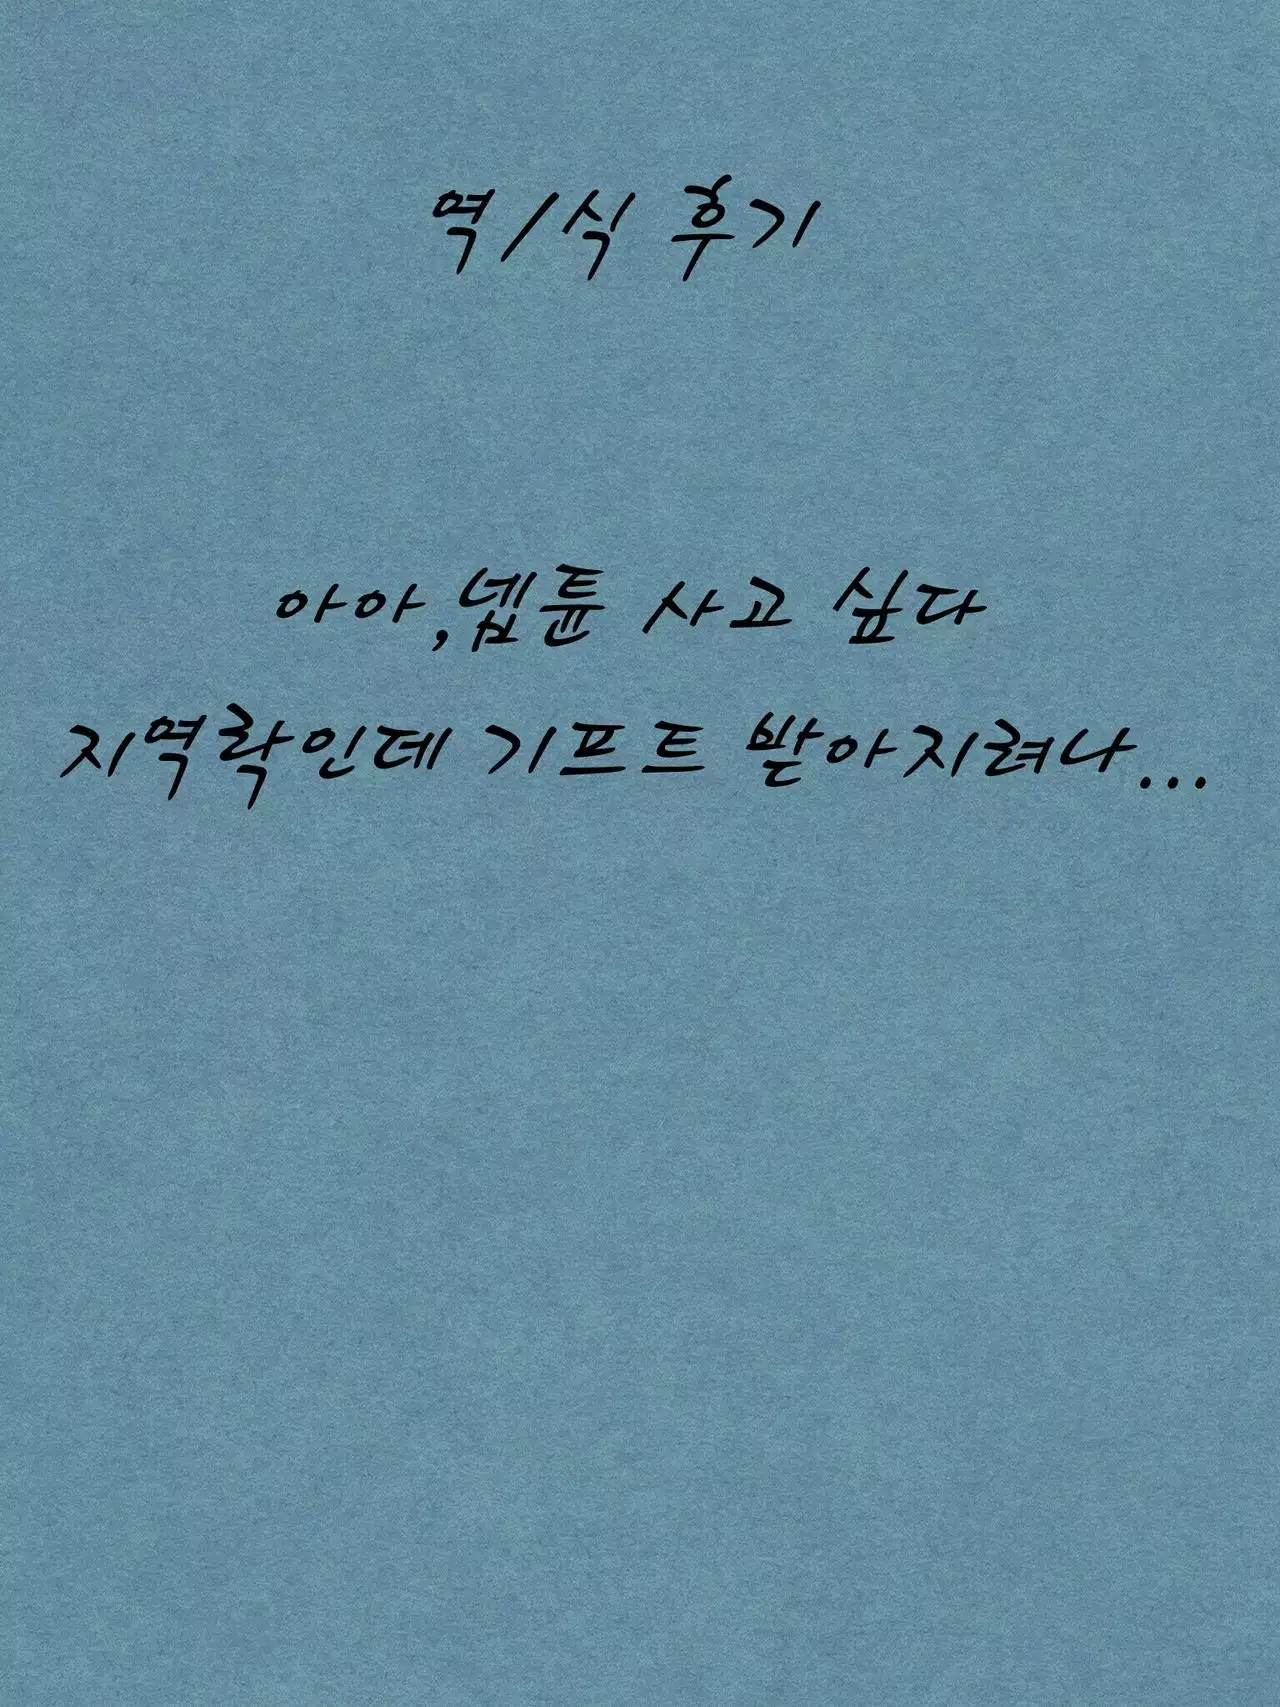 역/식 후기
아아,넵튠 사고 싶다
지역락인데 기프트 받아지려나...